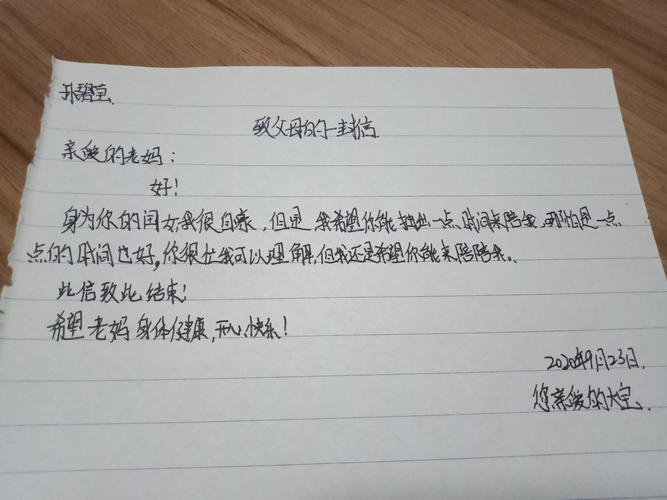 孙碧莹
致父母的一封信
亲爱的老妈:
好!
身为你的闺女我很自豪,但是我希望你能抽出一点时间来陪我,哪怕是一点
点的时间也好,你很忙我可以理解,但我还是希望你能来陪陪我。
此信致此结束!
希望老妈身体健康,开心快乐!
2020年9月23日.
您亲爱的大宝.